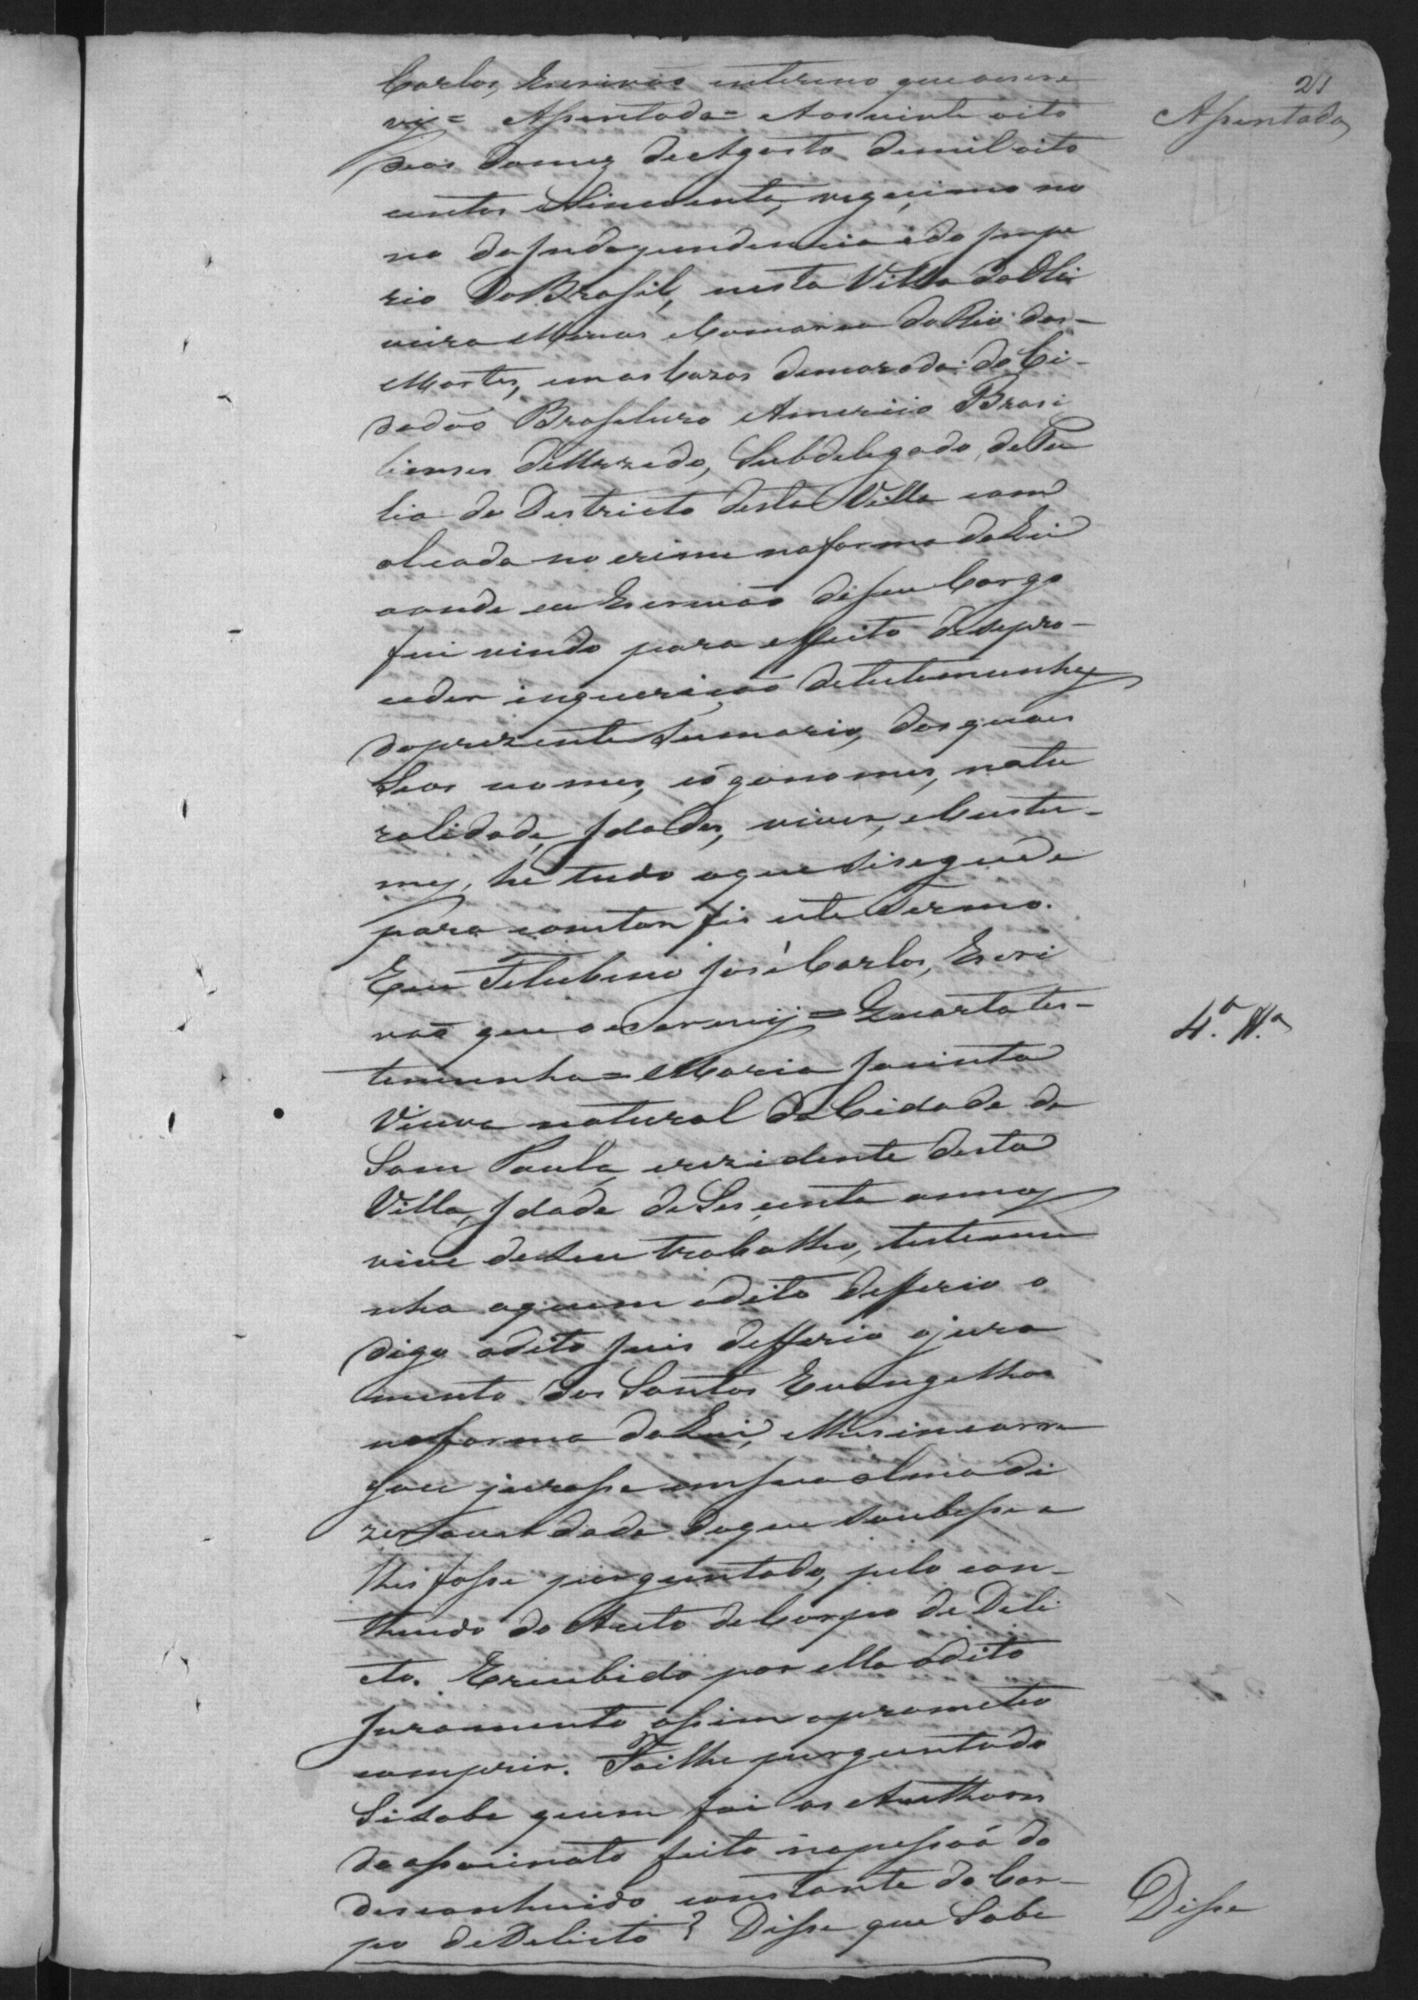 21
Assentada
Carlos, Escrivão interino que o escre
vy = Assentada = Aos vinte oito
dias do mez de Agosto de mil oito
centos e Sincoenta, vigecimo no
no da Independencia e do Impe
rio do Brasil, nesta Villa da Oli
veira Minas e Comarca do Rio das
Mortes, em as Cazas de morada do Ci-
dadão Brasileiro Americo Brasi
liense de Azevedo, Subdelegado de Pu
licia do Districto desta Villa com
alçada no crime na forma da Lei
aonde eu Escrivão de seu Cargo
fui vindo para effeito de se pro-
ceder inquerição de testemunhas
do prezente Sumario, das quaes
seos nomes, cognomes, natu
ralidade, Idades, viver, e Custu-
mes, he tudo o que se segue e
para constar fis este Termo.
Eu Filisbino José Carlos, Escri
vão que o escrevij = Quarta tes-
temunha = Maria Jacinta
Viuva natural da Cidade de
Sam Paulo, e rezidente desta
Villa, Idade de Secenta annos
vive de seu trabalho, testemu
nha a quem o dito defferio o
digo o dito Juis defferio o jura
mento dos Santos Evangelhos
na forma da Lei, e lhe incarre
gou jurasse em sua alma di
zer a verdade do que Soubesse e
lhe fosse perguntado, pelo con-
theudo do Auto de Corpo de Deli
cto. E recebido por ella o dito
Juramento assim o prometeo
comprir. Foi lhe perguntado
Si sabe quem foi os Authores
do assacinato feito na pessoa do
desconhecido constante do Cor-
po de Delicto? Disse que Sabe
4.ª tt.ª
Disse